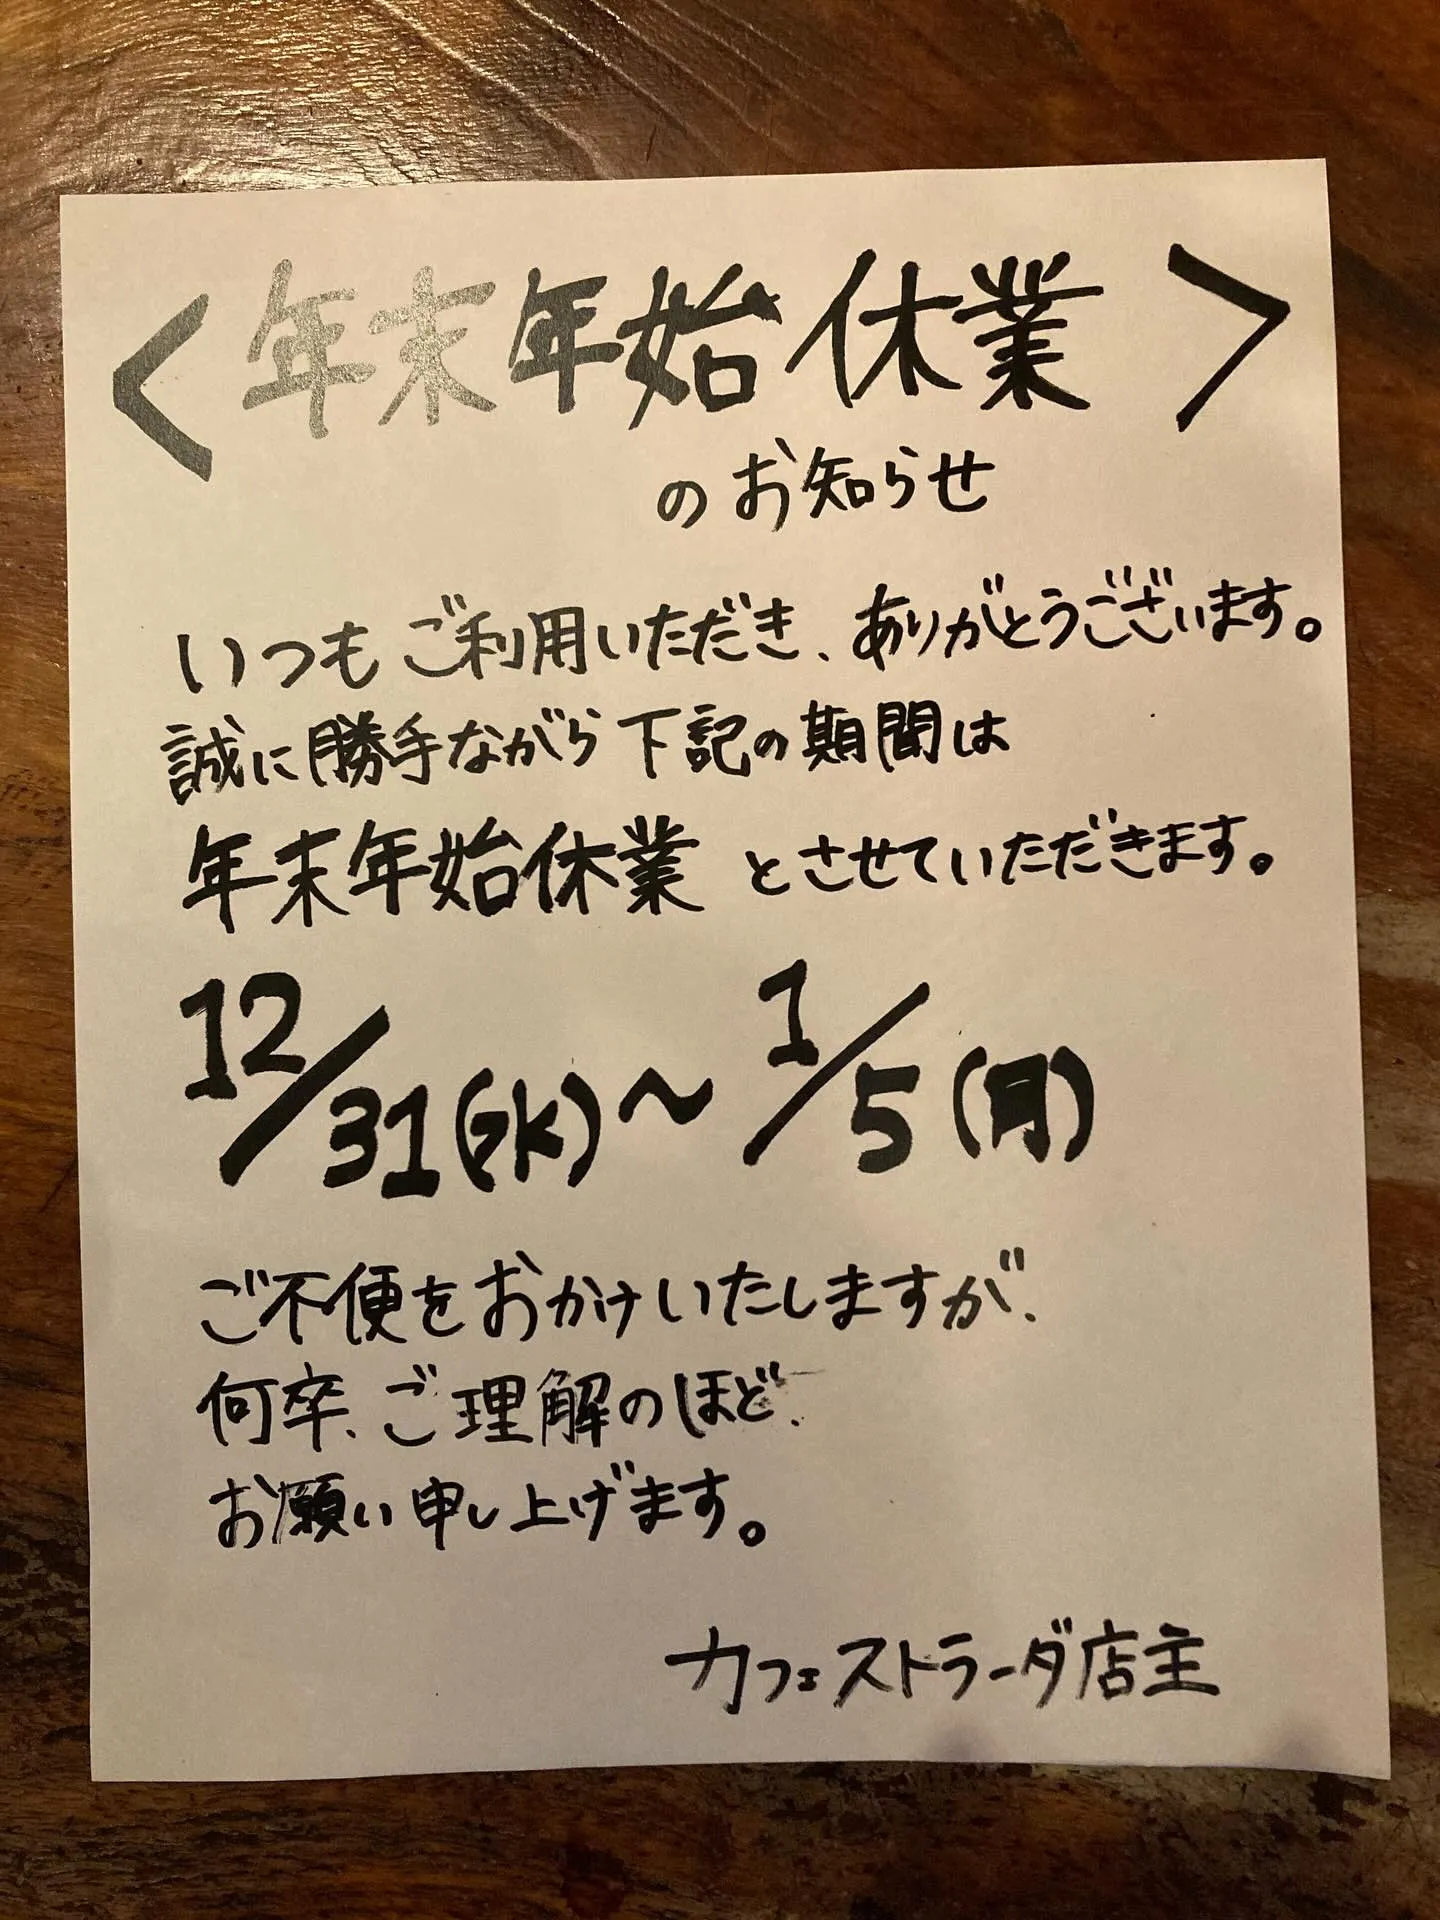 ＜年末年始休業＞
のお知らせ
いつもご利用いただき、ありがとうございます。
誠に勝手ながら下記の期間は
年末年始休業とさせていただきます。
12/31(水)～1/5(月)
ご不便をおかけいたしますが、
何卒、ご理解のほど、
お願い申し上げます。
カフェストラーダ店主